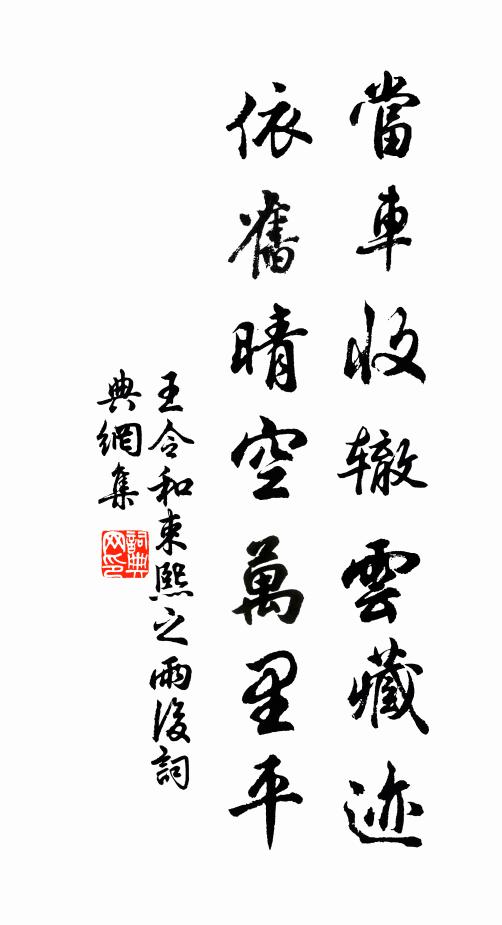 當車收辙雲藏迹
依舊晴空萬里平
王令和束熙之雨後詞
典網集
詞典网印